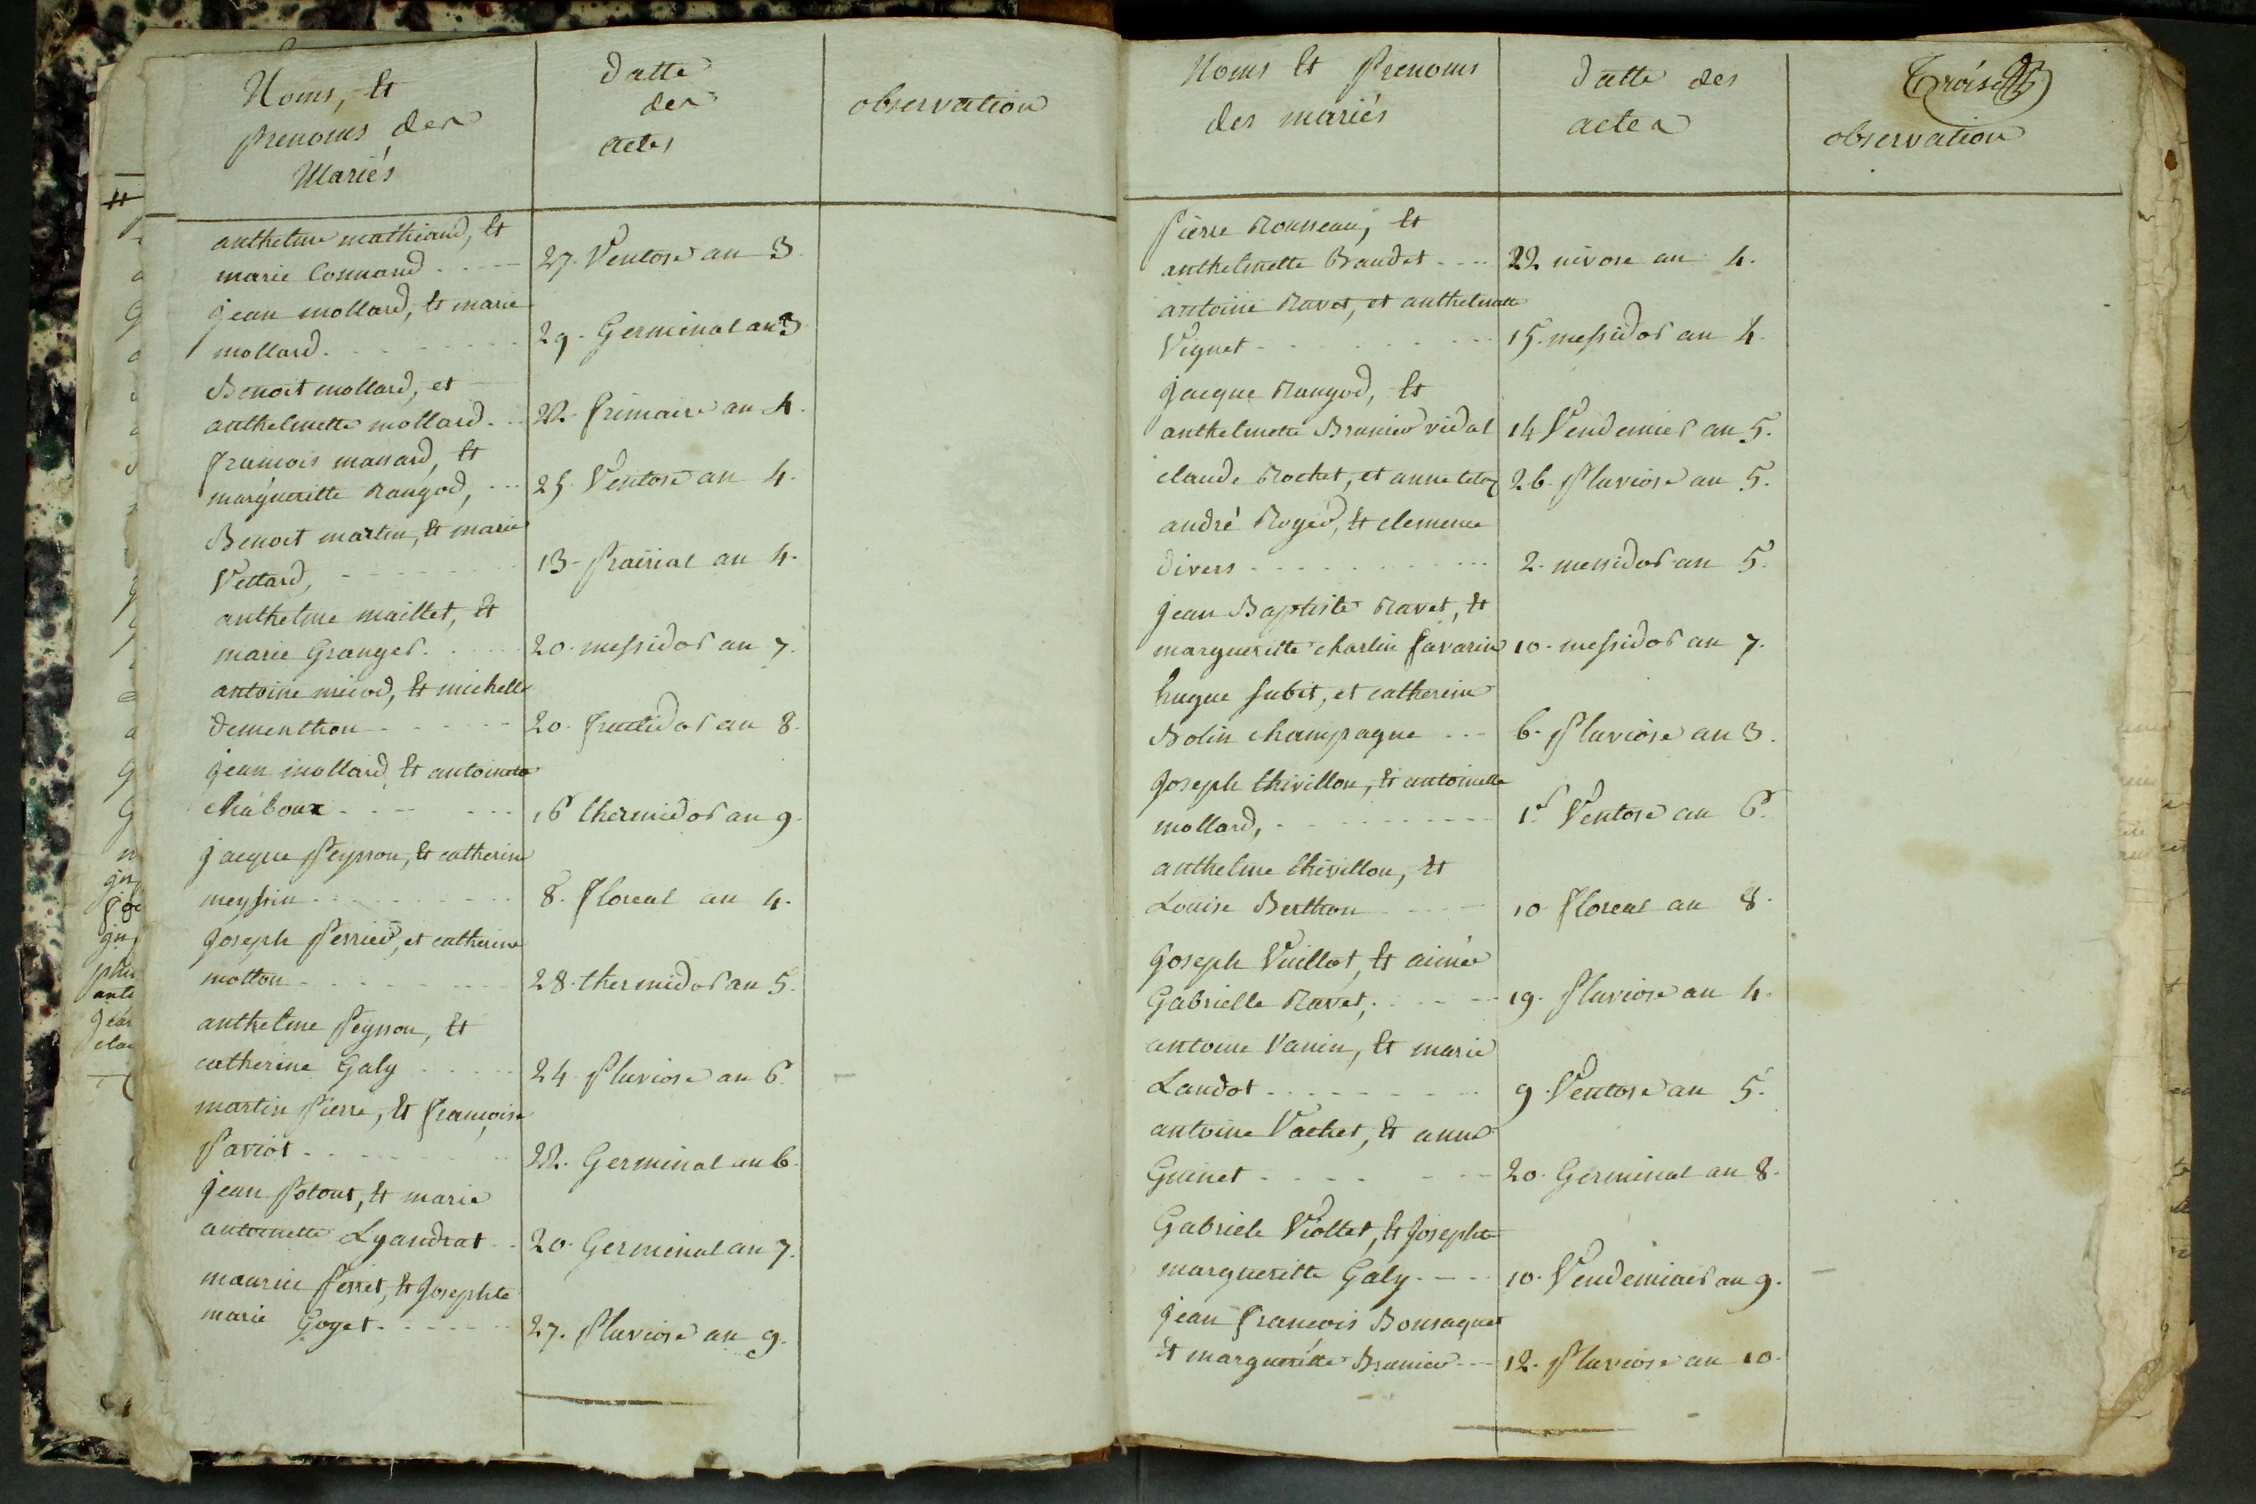 Noms, et
prenoms des
Mariés
datte
des
actes
observation
anthelme mathiand, et
marie Connand
27. Ventose an 3.
jean mollard, et marie
mollard
29. Germinal an 3
Benoit mollard, et
anthelmette mollard
22. frimaire an 4.
françois massard, et
margueritte Rangod,
25. Ventose an 4.
Benoit martin, et marie
Vettard,
13. Prairial an 4.
anthelme maillet, et
marie Granger
20. messidor an 7.
antoine micod, et michelle
dementhon
20. fructidor an 8.
jean mollard, et antoinette
Chaboux
16 thermidor an 9.
jacque Peysson, et catherine
meyssin
8. floreal an 4.
Joseph Perrier, et catherine
motton
28. thermidor an 5.
anthelme Peysson, et
catherine Galy
24. Pluviose an 6.
martin Pierre, et françoise
Pariot
22. Germinal an 6.
jean Potout, et marie
antoinette Lyandrat
20. Germinal an 7.
maurice Perret, et Josephte
marie Goget
27. Pluviose an 9.
Noms et Prenoms
des mariés
datte des
actes
Troise
observation
Pierre Rousseau, et
anthelmette Baudet
22 nivose an 4.
antoine Ravet, et anthelmette
Viguet
15. messidor an 4.
jacque Rangod, et
anthelmette Brunier vidal
14 Vendemier an 5.
claude Rochet, et anne
26. Pluviose an 5.
andré Royer, et clemence
divers
2. messidor an 5.
jean Baptiste Ravet, et
margueritte charlin favarin
10. messidor an 7.
hugue subit, et catherine
Bolin champagne
6. Pluviose an 3.
Joseph thivillon, et antoinette
mollard,
1er Ventose an 6.
anthelme thivillon, et
Louise Berthon
10 floreal an 8.
Joseph Vuillot, et aimée
Gabrielle Ravet,
19. Pluviose an 4.
antoine Vanin, et marie
Landot
9. Ventose an 5.
antoine Vachet, et anne
Guinet
20. Germinal an 8.
Gabriele Viollet, et Josephte
margueritte Galy
10. Vendemiair an 9.
jean françois Bonsaquet
et margueritte Brunier
12. Pluviose an 10.